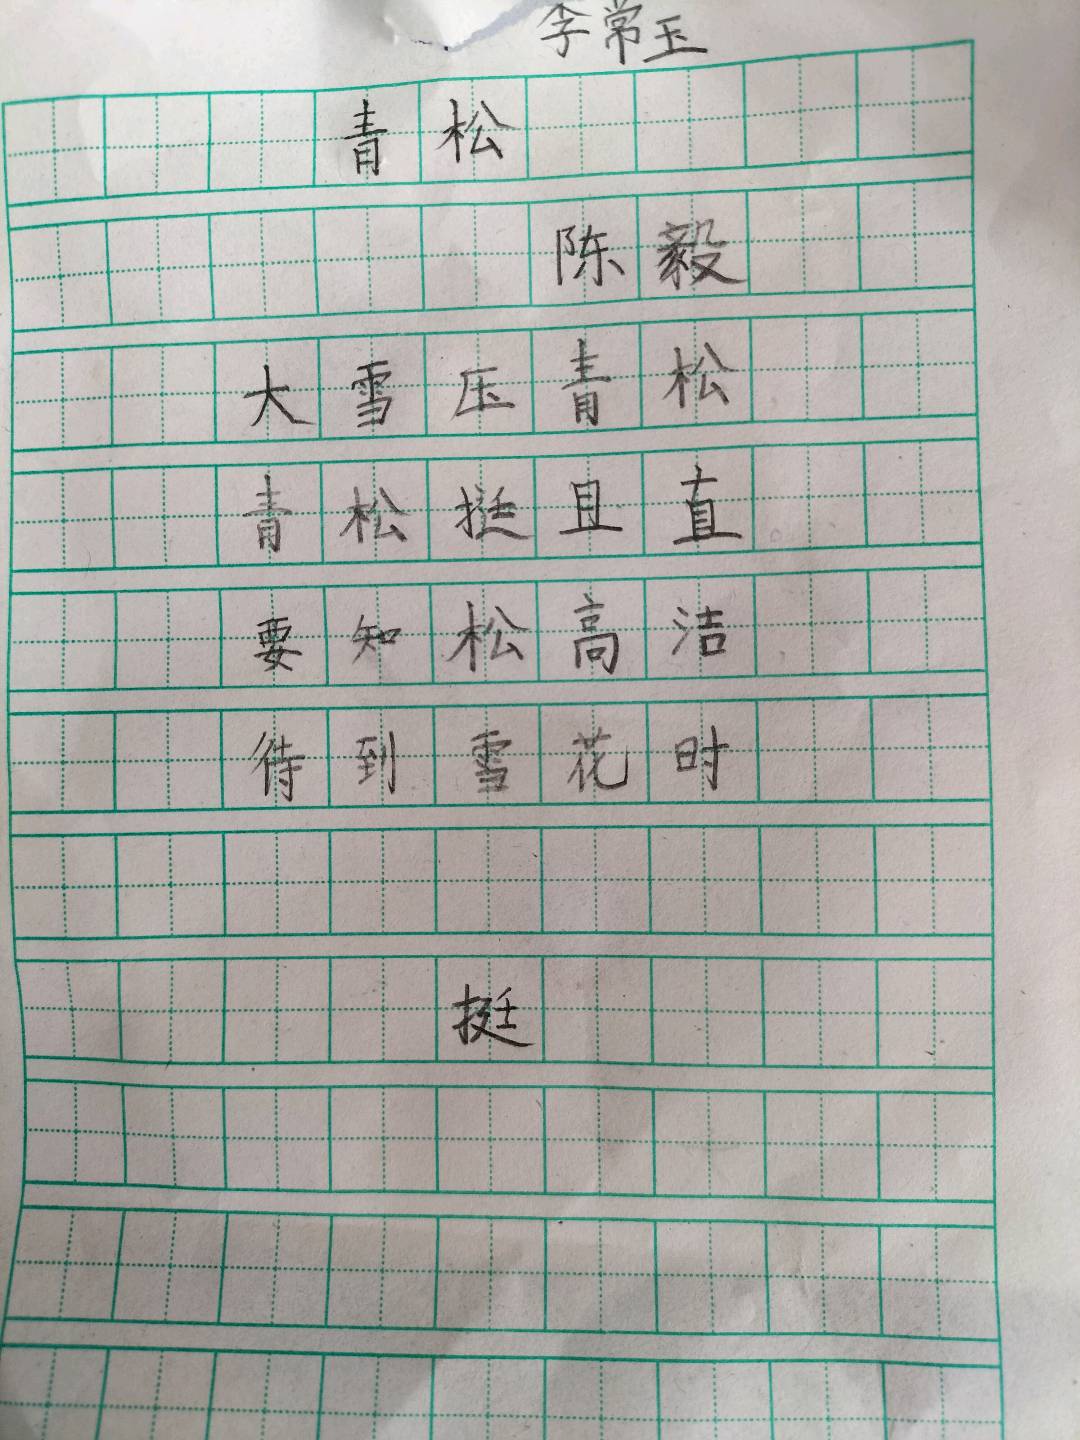 李常玉
青松
陈毅
大雪压青松
青松挺且直
要知松高洁
待到雪花时
挺